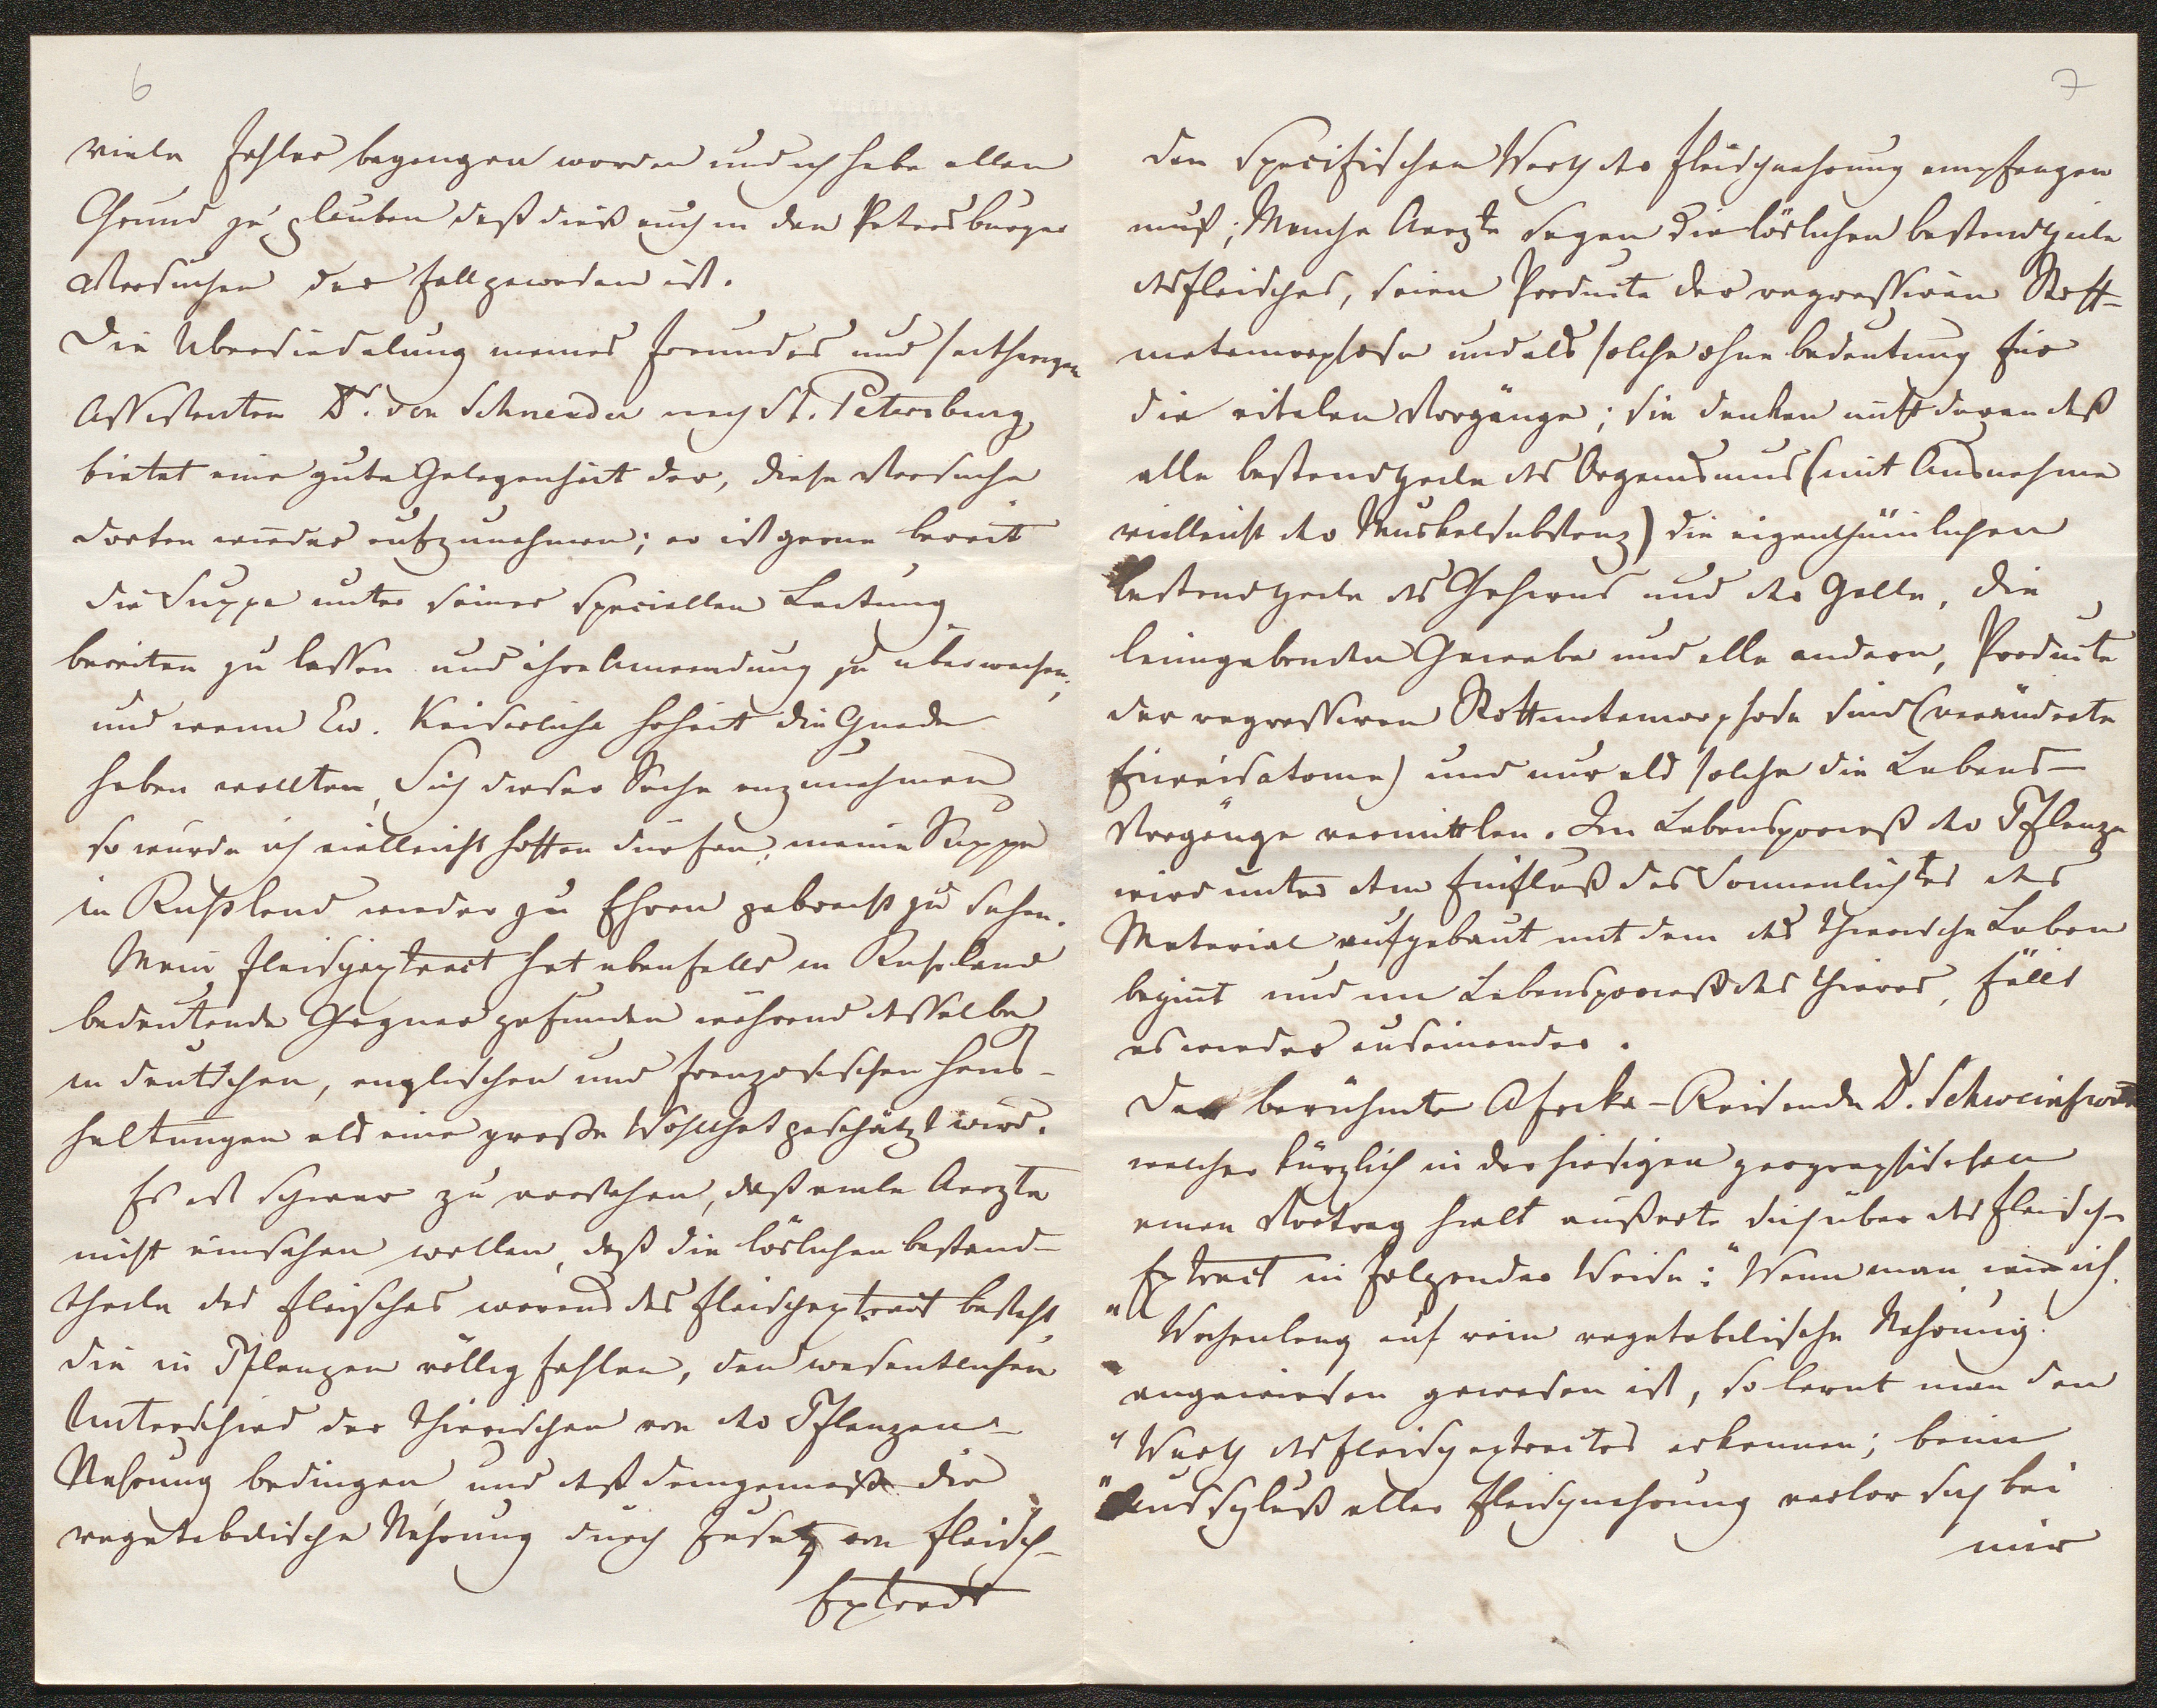 6
viele Fehler begangen worden und ich habe allen
Grund zu glauben daß dieß auch in den Petersburger
Versuchen der Fall gewesen ist.
Die Übersiedelung meines Freundes und seitherigen
Assistenten Dr. von Schneider nach St. Petersburg,
bietet eine gute Gelegenheit dar, diese Versuche
dorten wieder aufzunehmen; er ist gerne bereit
die Suppe unter seiner speciellen Leitung
bereiten zu lassen und ihre Anwendung zu überwachen;
und wenn Ew. Kaiserliche Hoheit die Gnade
haben wollten, Sich dieser Sache anzunehmen
so würde ich vielleicht hoffen dürfen, meine Suppe
in Rußland wieder zu Ehren gebracht zu sehen.
Mein Fleischextract hat ebenfalls in Russland
bedeutende Gegner gefunden während dasselbe
in deutschen, englischen und französischen Haus-
haltungen als eine große Wohlthat geschätzt wird.
Es ist schwer zu verstehen, daß viele Aerzte
nicht einsehen wollen, daß die löslichen Bestand-
theile des Fleisches woraus das Fleischextract besteht
die in Pflanzen völlig fehlen, den wesentlichen
Unterschied der thierischen von der Pflanzen-
Nahrung bedingen und daß demgemäß die
vegetabilische Nahrung durch Zusatz von Fleisch-
Extract
7
den specifischen Werth der Fleischnahrung empfangen
muß; Manche Aerzte sagen die löslichen Bestandtheile
des Fleisches, seien Producte der regressiven Stoff-
metamorphose und als solche ohne Bedeutung für
die vitalen Vorgänge; sie denken nicht daran daß
alle Bestandtheile des Organismus (mit Ausnahme
vielleicht der Muskelsubstanz) die eigenthümlichen
Bestandtheile des Gehirns und der Galle, die
leimgebenden Gewebe und alle andern, Producte
der regressiven Stoffmetamorphose sind (veränderte
Eiweisatome) und nur als solche die Lebens-
Vorgänge vermitteln. Im Lebensproceß der Pflanze
wird unter dem Einfluß des Sonnenlichtes das
Material aufgebaut mit dem das thierische Leben
beginnt und im Lebensproceß des Thieres, fällt
es wieder auseinander.
Der berühmte Afrika-Reisende Dr. Schweinfurth
welcher kürzlich in der hiesigen geographischen
einen Vortrag hielt äußerte sich über das Fleisch-
Extract in folgender Weise: "Wenn man wie ich
" Wochenlang auf rein vegetabilische Nahrung
" angewiesen gewesen ist, so lernt man den
" Werth des Fleischextractes erkennen; beim
" Ausschluß aller Fleischnahrung verlor sich bei
mir